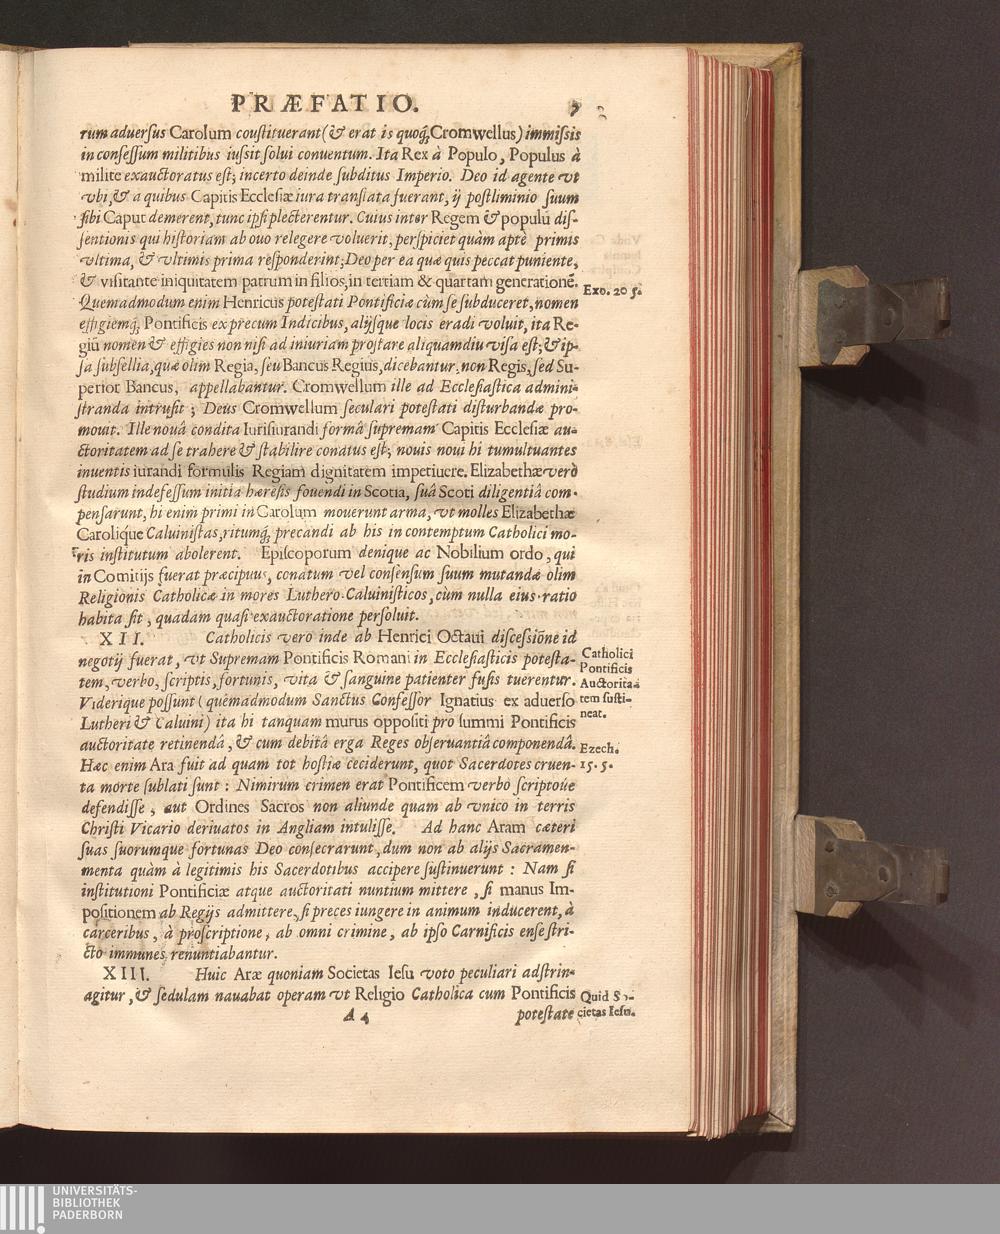 PRÆFATIO. 7
rum aduersus Carolum coustituerant (& erat is quoq́; Cromwellus) immissis
in consessum militibus iussit solui conuentum. Ita Rex à Populo, Populus à
milite exauctoratus est; incerto deinde subditus Imperio. Deo id agente vt
vbi, & a quibus Capitis Ecclesiæ iura translata fuerant, ij postliminio suum
sibi Caput demerent, tunc ipsi plecterentur. Cuius inter Regem & populū dis-
sentionis qui historiam ab ouo relegere voluerit, perspiciet quàm aptè primis
vltima, & vltimis prima responderint; Deo per ea quæ quis peccat puniente,
& visitante iniquitatem patrum in filios, in tertiam & quartam generationē.
Exo. 20 5.
Quemadmodum enim Henricus potestati Pontificiæ cùm se subduceret, nomen
effigiemq́; Pontificis ex precum Indicibus, alijsque locis eradi voluit, ita Re-
giū nomen & effigies non nisi ad iniuriam prostare aliquamdiu visa est; & ip-
sa subsellia, quæ olim Regia, seu Bancus Regius, dicebantur, non Regis, sed Su-
perior Bancus, appellabantur. Cromwellum ille ad Ecclesiastica admini-
stranda intrusit; Deus Cromwellum seculari potestati disturbandæ pro-
mouit. Ille nouâ condita Iurisiurandi formâ supremam Capitis Ecclesiæ au-
ctoritatem ad se trahere & stabilire conatus est; nouis noui hi tumultuantes
inuentis iurandi formulis Regiam dignitatem impetiuere. Elizabethæ verò
studium indefessum initia hæresis fouendi in Scotia, suâ Scoti diligentiâ com-
pensarunt, hi enim primi in Carolum mouerunt arma, vt molles Elizabethæ
Carolíque Caluinistas, ritumq́; precandi ab his in contemptum Catholici mo-
ris institutum abolerent. Episcoporum denique ac Nobilium ordo, qui
in Comitijs fuerat præcipuus, conatum vel consensum suum mutandæ olim
Religionis Catholicæ in mores Luthero-Caluinisticos, cùm nulla eius ratio
habita sit, quadam quasi exauctoratione persoluit.
XII. Catholicis vero inde ab Henrici Octaui discessiōne id
negotij fuerat, vt Supremam Pontificis Romani in Ecclesiasticis potesta-
tem, verbo, scriptis, fortunis, vita & sanguine patienter fusis tuerentur.
Viderique possunt (quēmadmodum Sanctus Confessor Ignatius ex aduerso
Lutheri & Caluini) ita hi tanquam murus oppositi pro summi Pontificis
Catholici
Pontificis
Auctorita-
tem susti-
neat.
auctoritate retinendâ, & cum debitâ erga Reges obseruantiâ componendâ.
Hæc enim Ara fuit ad quam tot hostiæ ceciderunt, quot Sacerdotes cruen-
Ezech.
15. 5.
ta morte sublati sunt: Nimirum crimen erat Pontificem verbo scriptoúe
defendisse, aut Ordines Sacros non aliunde quam ab vnico in terris
Christi Vicario deriuatos in Angliam intulisse. Ad hanc Aram cæteri
suas suorumque fortunas Deo consecrarunt, dum non ab alijs Sacramen-
menta quàm à legitimis his Sacerdotibus accipere sustinuerunt: Nam si
institutioni Pontificiæ atque auctoritati nuntium mittere, si manus Im-
positionem ab Regijs admittere, si preces iungere in animum inducerent, à
carceribus, à proscriptione, ab omni crimine, ab ipso Carnificis ense stri-
cto immunes renuntiabantur.
XIII. Huic Aræ quoniam Societas Iesu voto peculiari adstrin-
agitur, & sedulam nauabat operam vt Religio Catholica cum Pontificis
Quid So-
cietas Iesu.
A 4 potestate
UNIVERSITÄTS-
BIBLIOTHEK
PADERBORN